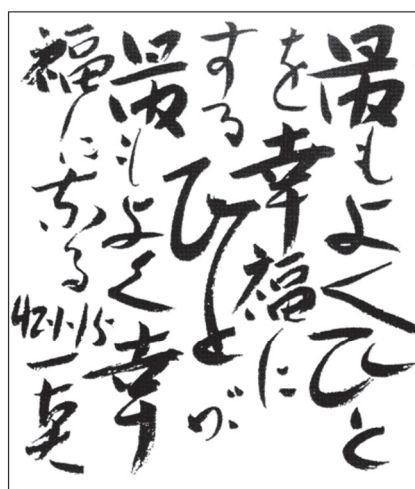 最もよくひと
を幸福に
するひとが
最もよく幸
福になる
42・1・15
一真